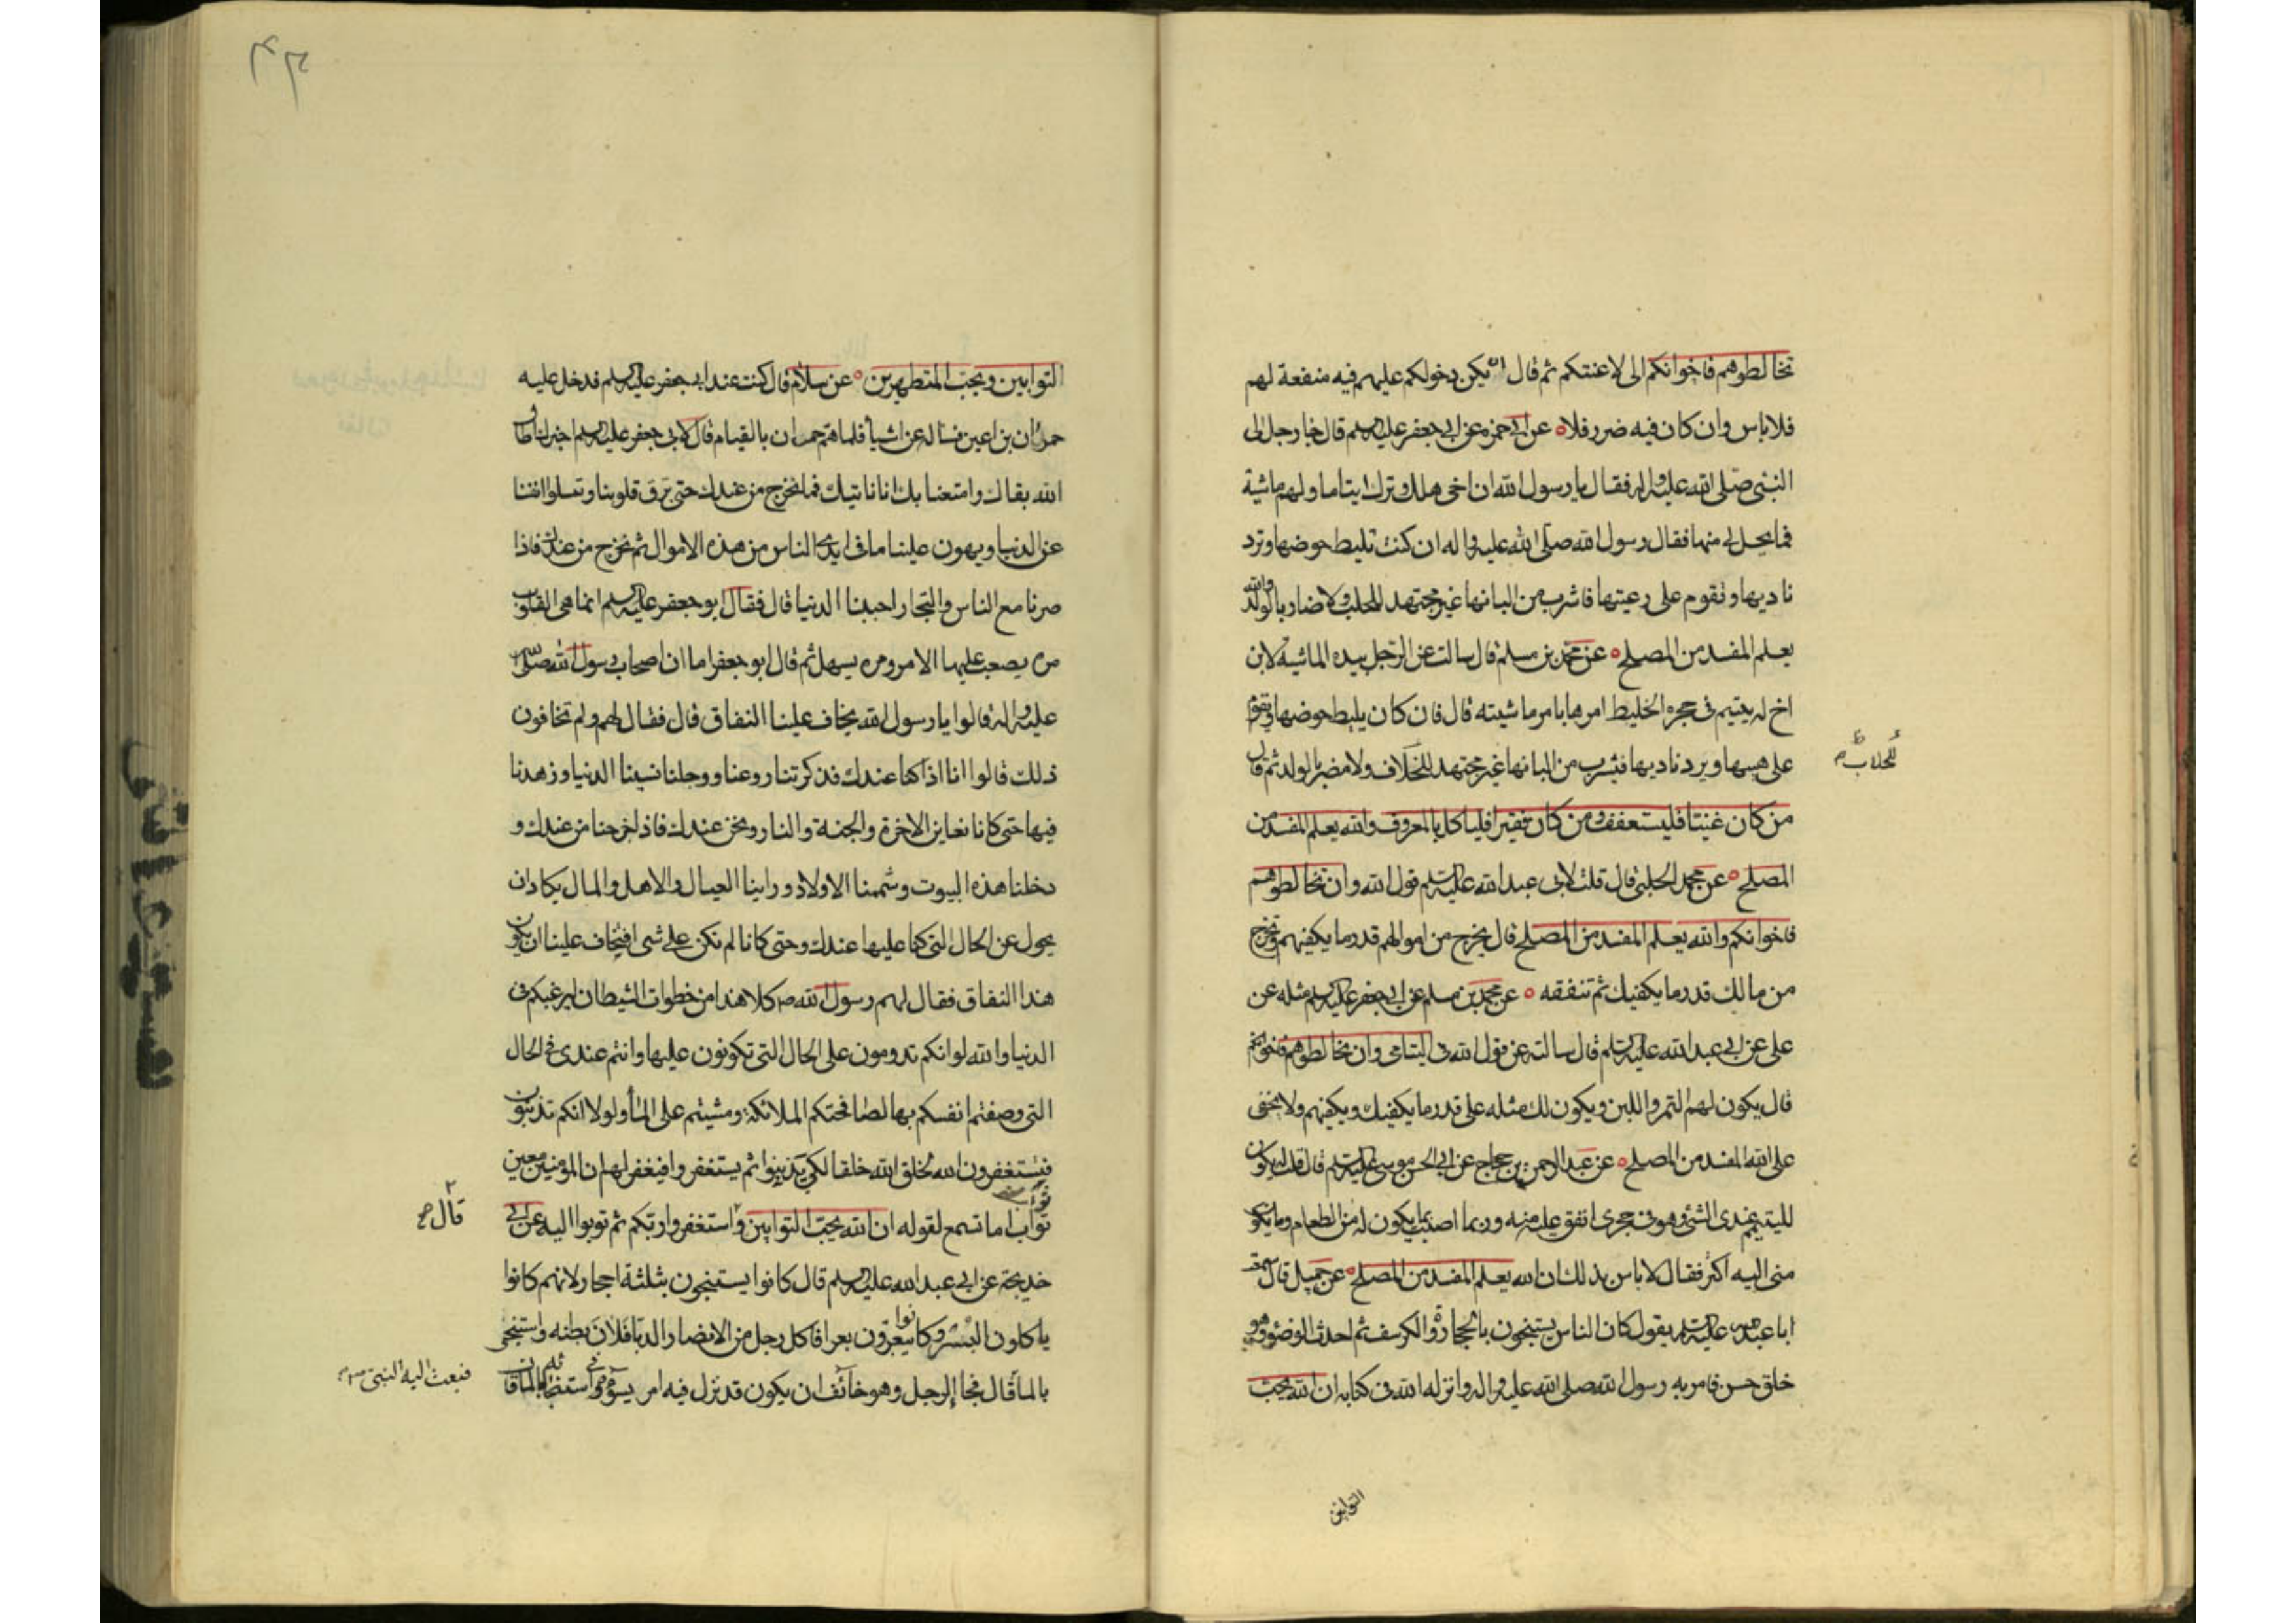 تخالطوهم فاخوانكم الى لاعنتكم ثم قال ان يكن دخولكم عليهم فيه منفعة لهم
فلا باس وان كان فيه ضرر فلا ه عن ابى حمزه عن ابى جعفر عليه السلم قال جا رجل الى
النبى صلى الله عليه واله فقال يا رسول الله ان اخى هلك وترك ايتاما ولهم ماشية
فما يحل لى منها فقال رسول الله صلى الله عليه واله ان كنت تليط حوضها وترد
ناديها وتقوم على رعيتها فاشرب من البانها غير مجتهد للحلب ولا ضار بالولد والله
يعلم المفسد من المصلح ه عن محمد بن مسلم قال سالت عن الرجل بيده الماشيه لابن
اخ له يتيم فى حجره الخليط امرها بامر ماشيته قال فان كان يليط حوضها ويقوم
على هيبها ويرد ناديها فيشرب من البانها غير مجتهد للخلاف ولا مضر بالولد ثم قال
للحلاب ظ
من كان غنيا فليستعفف ومن كان فقيرا فلياكل بالمعروف والله يعلم المفسد من
المصلح ه عن محمد الحلبى قال قلت لابى عبد الله عليه السلم قول الله وان تخالطوهم
فاخوانكم والله يعلم المفسد من المصلح قال يخرج من اموالهم قدر ما يكفيهم وتخرج
من مالك قدر ما يكفيك ثم تنفقه ه عن محمد بن مسلم عن ابى جعفر عليه السلم مثله عن
على عن ابى عبد الله عليه السلم قال سالته عن قول الله فى اليتامى وان تخالطوهم فاخوانكم
قال يكون لهم التمر واللبن ويكون لك مثله على قدر ما يكفيك ويكفيهم ولا يخفى
على الله المفسد من المصلح ه عن عبد الرحمن بن حجاج عن ابى الحسن موسى عليه السلم قال قلت له يكون
لليتيم عندى الشئ وهو فى حجرى انفق عليه منه وربما اصيب مما يكون له من الطعام وما يكون
منى اليه اكثر فقال لا باس بذلك ان الله يعلم المفسد من المصلح ه عن جميل قال سمعت
ابا عبد الله عليه السلم يقول كان الناس يستنجون بالحجارة والكرسف ثم احدث الوضوء وهو
خلق حسن فامر به رسول الله صلى الله عليه واله وانزله الله فى كتابه ان الله يحب
التوابين
التوابين ويحب المتطهرين ه عن سلام قال كنت عند ابى جعفر عليه السلم فدخل عليه
حمران بن اعين فساله عن اشياء فلما هم حمران بالقيام قال لابى جعفر عليه السلم اخبرك اطال
الله بقاك وامتعنا بك انا ناتيك فما نخرج من عندك حتى ترق قلوبنا وتسلوا انفسنا
عن الدنيا ويهون علينا ما فى ايدى الناس من هذه الاموال ثم نخرج من عندك فاذا
صرنا مع الناس والتجار احببنا الدنيا قال فقال ابو جعفر عليه السلم انما هى القلوب
مره يصعب عليها الامر ومره يسهل ثم قال ابو جعفر اما ان اصحاب رسول الله صلى الله
عليه واله قالوا يا رسول الله يخاف علينا النفاق قال فقال لهم ولم تخافون
ذلك قالوا انا اذا كنا عندك فذكرتنا روعنا ووجلنا نسينا الدنيا وزهدنا
فيها حتى كانا نعاين الاخرة والجنة والنار ونحن عندك فاذا خرجنا من عندك و
دخلنا هذه البيوت وشممنا الاولاد وراينا العيال والاهل والمال يكاد ان
يحول عن الحال التى كنا عليها عندك وحتى كانا لم نكن على شى افتخاف علينا ان يكون
هذا النفاق فقال لهم رسول الله ص كلا هذا من خطوات الشيطان ليرغبكم فى
الدنيا والله لو انكم تدومون على الحال التى تكونون عليها وانتم عندى فى الحال
التى وصفتم انفسكم بها لصافحتكم الملائكة ومشيتم على الماء ولولا انكم تذنبون
فتستغفرون الله لخلق الله خلقا لكى يذنبوا ثم يستغفروا فيغفر لهم ان المؤمن مفتن
تواب اما تسمع لقوله ان الله يحب التوابين واستغفروا ربكم ثم توبوا اليه عن ابى
قال
خديجة عن ابى عبد الله عليه السلم قال كانوا يستنجون بثلثة احجار لانهم كانوا
ياكلون البسر وكانوا يبعرون بعرا فاكل رجل من الانصار الدبا فلان بطنه واستنجى
بالماء قال فجاء الرجل وهو خائف ان يكون قد نزل فيه امر يسوءه فى استنجائه بالماء قال
فبعث اليه النبى ص